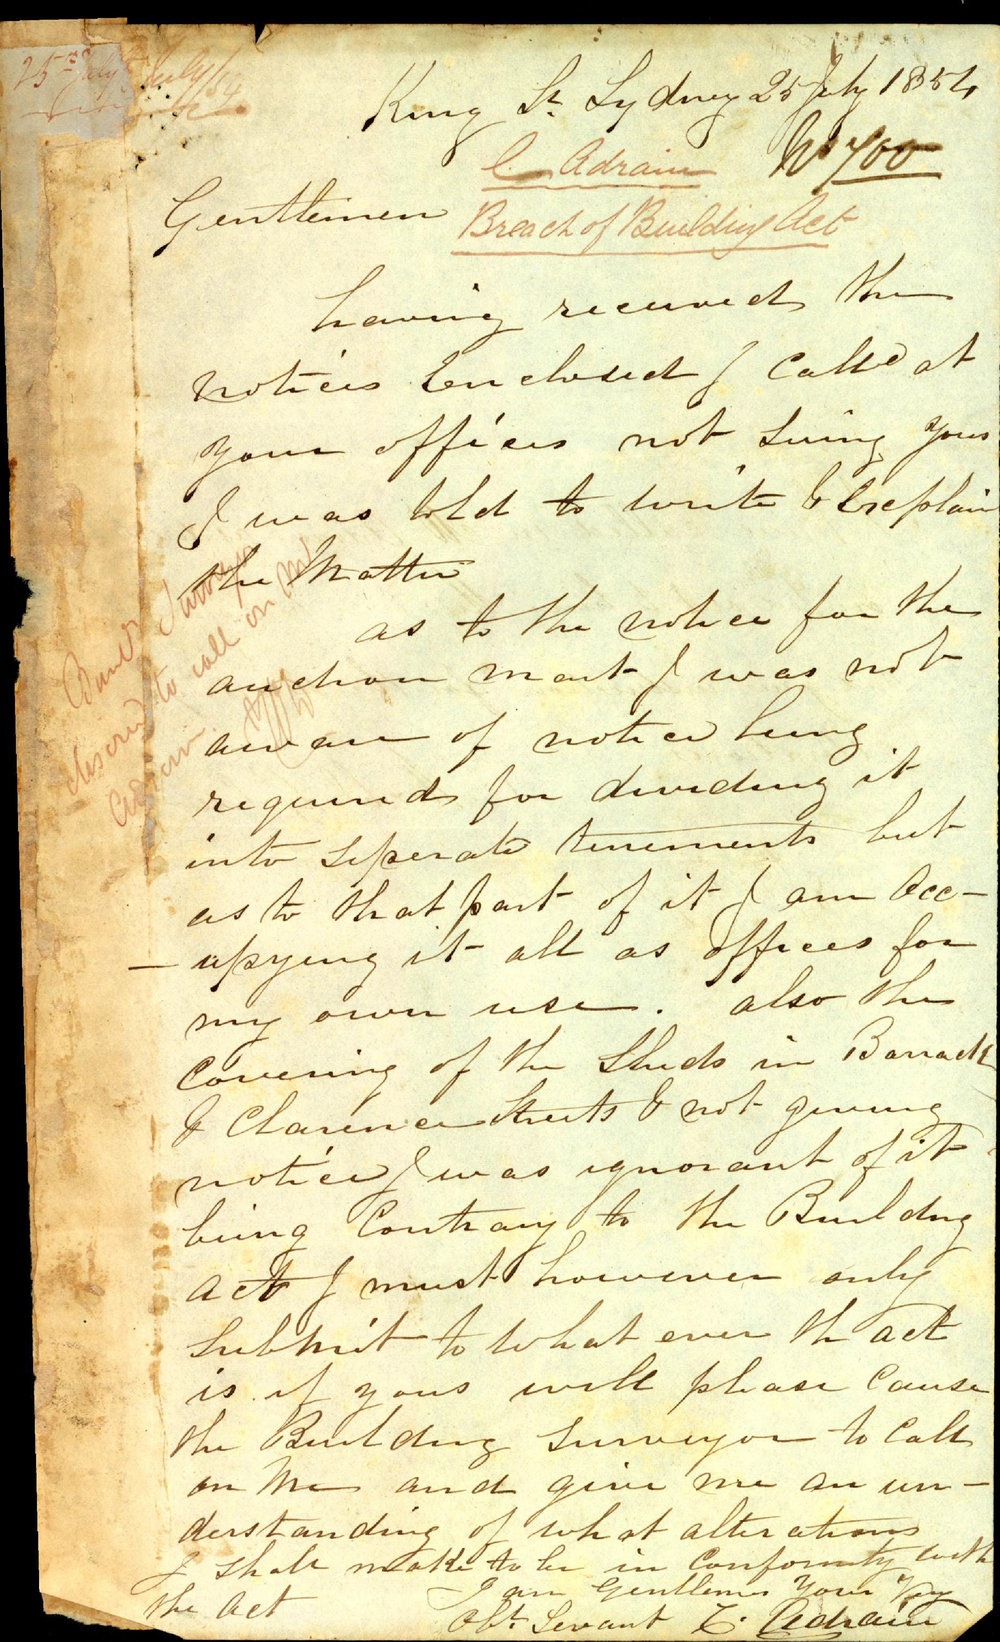 25th July
King St. Sydney 25 July 1854
No 700
C. Adrain
Gentlemen
Breach of Building Act
having received the
notices Enclosed I Calld at
your offices not Suing yous
I was told to write & Explain
the Matter
as to the notice for the
auction mart I was not
aware of notice being
required for dividing it
into seperate tenements but
as to that part of it I am Occ-
-upying it all as offices for
my own use. also the
Covering of the Sheds in Barrack
& Clarence Streets & not giving
notice I was ignorant of it
being Contrary to the Buildng
act I must however only
Submit to what ever th act
is if yous will please Cause
the Building Surveyor to Call
on Me and give me an un-
derstanding of what alterations
I shall make to be in Conformity with
the Act
I am Gentlemen Your Very
Obt. Servant C. Adrain
Surveyor
desired to call on Mr
Adrain